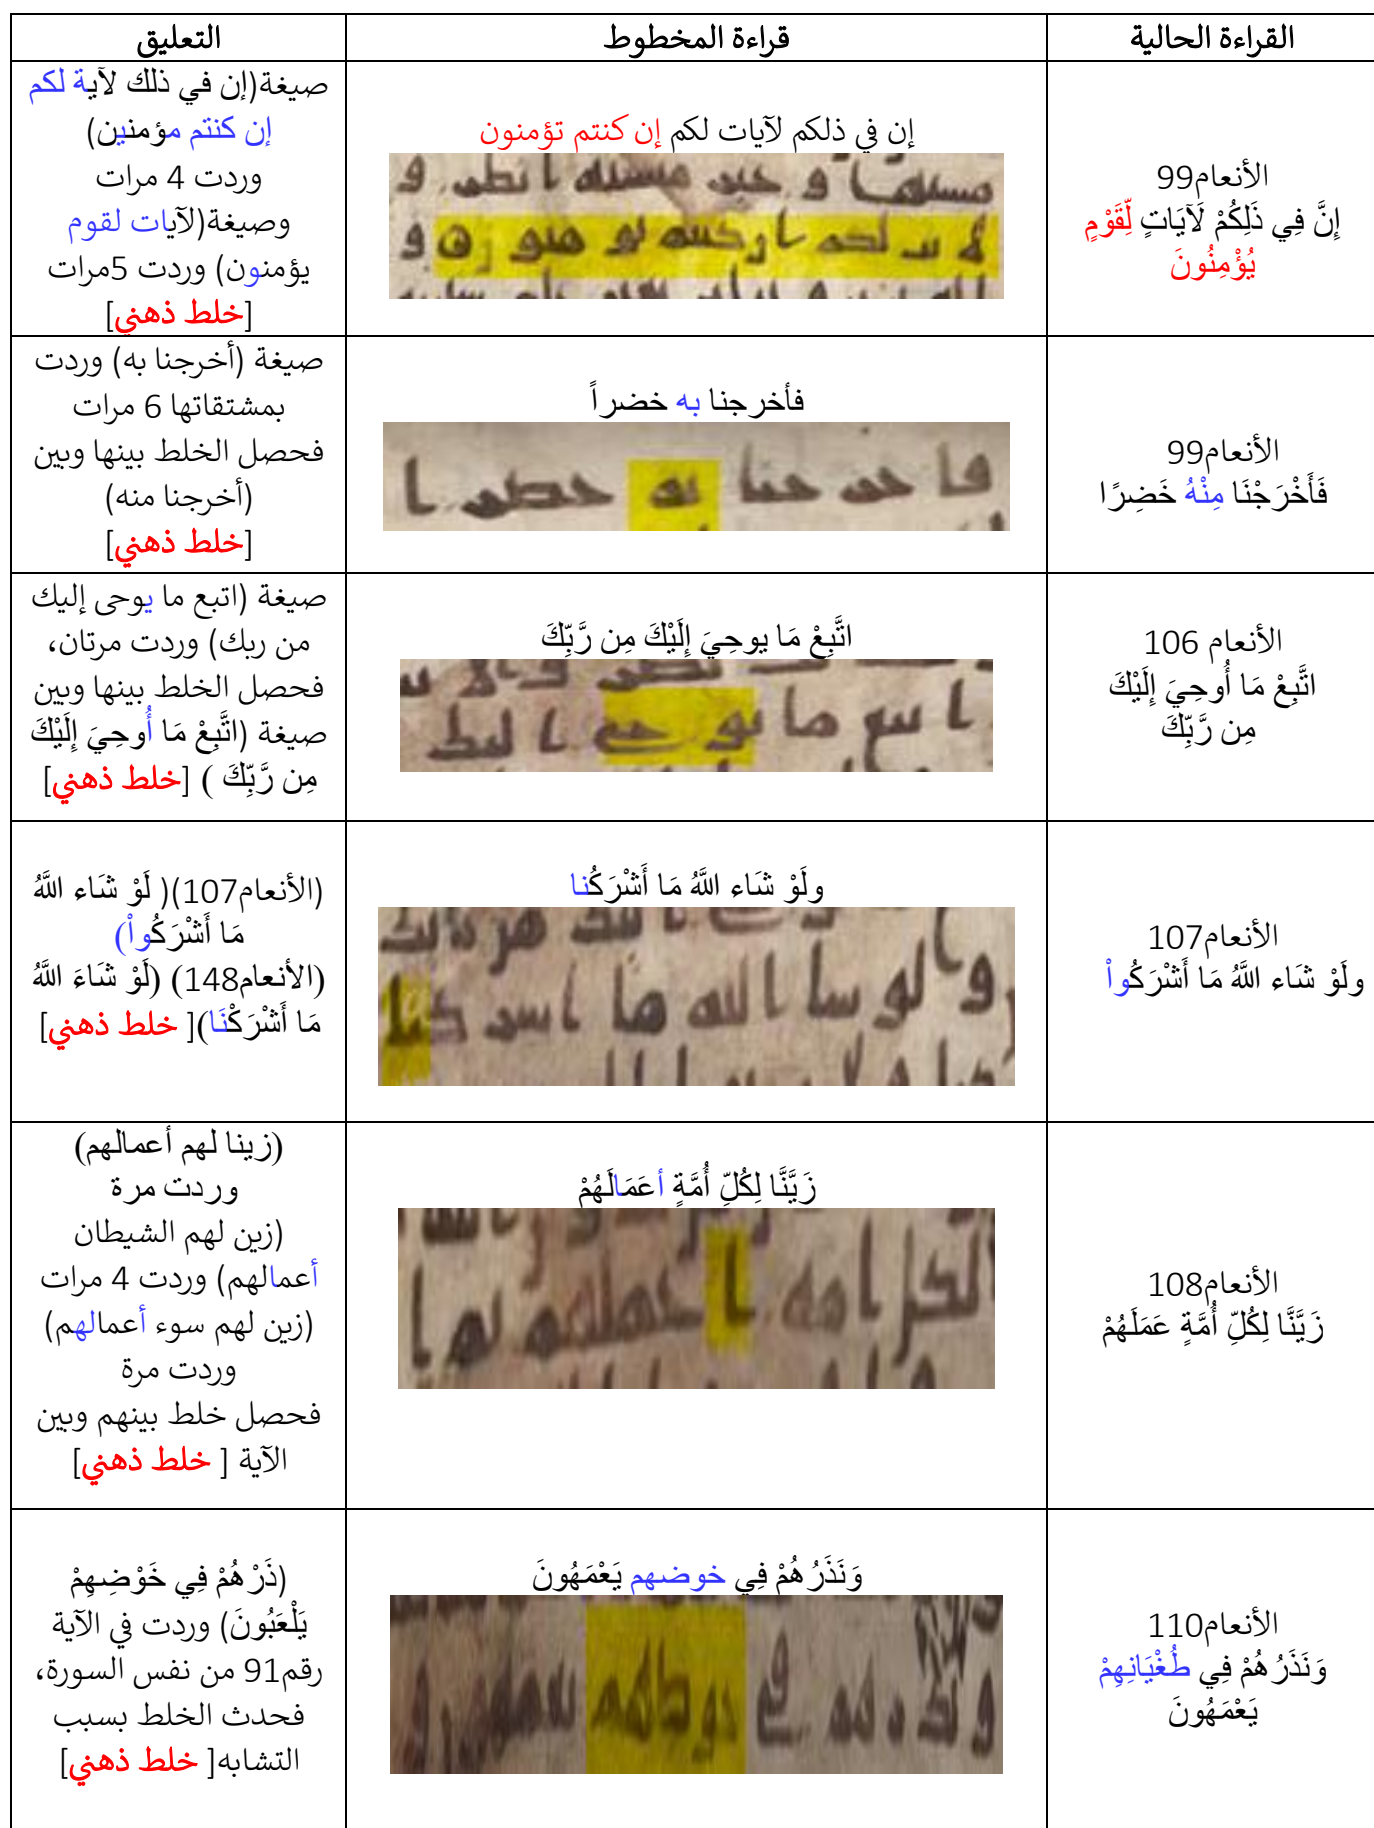 القراءة الحالية
قراءة المخطوط
التعليق
الأنعام99
إِنَّ فِي ذَلِكُمْ لَآيَاتٍ لِّقَوْمٍ
يُؤْمِنُونَ
إن في ذلكم لآيات لكم إن كنتم تؤمنون
صيغة(إن في ذلك لآية لكم
إن كنتم مؤمنين)
وردت 4 مرات
وصيغة(لآيات لقوم
يؤمنون) وردت 5مرات
[خلط ذهني]
الأنعام99
فَأَخْرَجْنَا مِنْهُ خَضِرًا
فأخرجنا به خضراً
صيغة (أخرجنا به) وردت
بمشتقاتها 6 مرات
فحصل الخلط بينها وبين
(أخرجنا منه)
[خلط ذهني]
الأنعام 106
اتَّبِعْ مَا أُوحِيَ إِلَيْكَ
مِن رَّبِّكَ
اتَّبِعْ مَا يوحِيَ إِلَيْكَ مِن رَّبِّكَ
صيغة (اتبع ما يوحى إليك
من ربك) وردت مرتان،
فحصل الخلط بينها وبين
صيغة (اتَّبِعْ مَا أُوحِيَ إِلَيْكَ
مِن رَّبِّكَ ) [خلط ذهني]
الأنعام107
ولَوْ شَاء اللَّهُ مَا أَشْرَكُواْ
ولَوْ شَاء اللَّهُ مَا أَشْرَكُنا
(الأنعام107)( لَوْ شَاء اللَّهُ
مَا أَشْرَكُواْ)
(الأنعام148) (لَوْ شَاءَ اللَّهُ
مَا أَشْرَكْنَا)[ خلط ذهني]
الأنعام108
زَيَّنَّا لِكُلِّ أُمَّةٍ عَمَلَهُمْ
زَيَّنَّا لِكُلِّ أُمَّةٍ أعَمَالَهُمْ
(زينا لهم أعمالهم)
وردت مرة
(زين لهم الشيطان
أعمالهم) وردت 4 مرات
(زين لهم سوء أعمالهم)
وردت مرة
فحصل خلط بينهم وبين
الآية [ خلط ذهني]
الأنعام110
وَنَذَرُهُمْ فِي طُغْيَانِهِمْ
يَعْمَهُونَ
وَنَذَرُهُمْ فِي خوضهم يَعْمَهُونَ
(ذَرْهُمْ فِي خَوْضِهِمْ
يَلْعَبُونَ) وردت في الآية
رقم91 من نفس السورة،
فحدث الخلط بسبب
التشابه[ خلط ذهني]